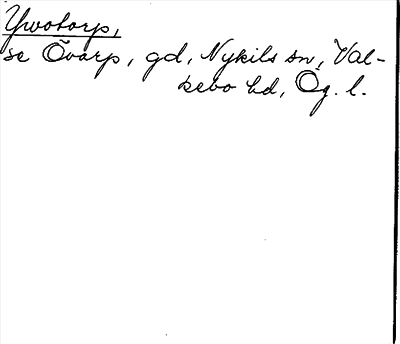 Ywotorp,
se Övarp, gd, Nykils sn, Val-
kebo hd, Ög. l.